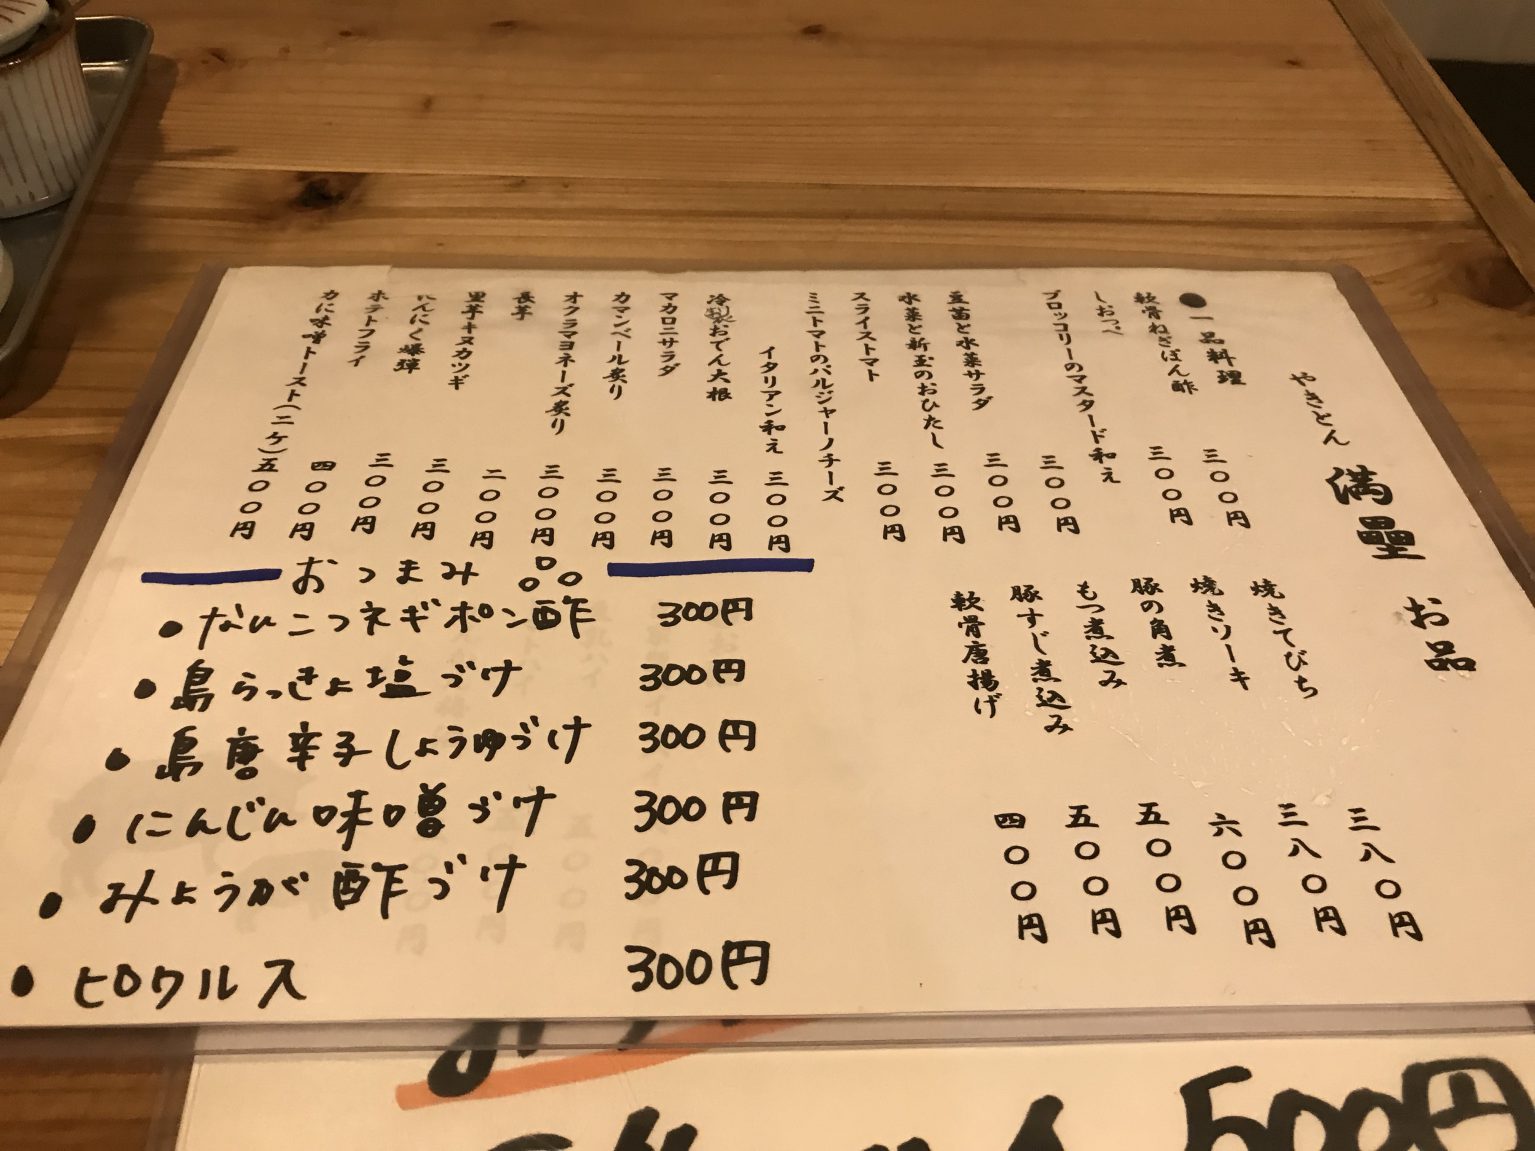 やきとん 満壘 お品
●一品料理
軟骨ねぎぽん酢 三〇〇円
しおっぺ 三〇〇円
ブロッコリーのマスタード和え
三〇〇円
豆苗と水菜サラダ 三〇〇円
水菜と新玉のおひたし 三〇〇円
スライストマト 三〇〇円
ミニトマトのパルジャーノチーズ
イタリアン和え 三〇〇円
冷製おでん大根 三〇〇円
マカロニサラダ 三〇〇円
カマンベール炙り 三〇〇円
オクラマヨネーズ炙り 三〇〇円
長芋 二〇〇円
里芋キヌカツギ 三〇〇円
にんにく爆弾 三〇〇円
ポテトフライ 四〇〇円
カに味噌トースト(二ケ) 五〇〇円
焼きてびち 三八〇円
焼きソーキ 三八〇円
豚の角煮 六〇〇円
もつ煮込み 五〇〇円
豚すじ煮込み 五〇〇円
軟骨唐揚げ 四〇〇円
おつまみ
●なんこつネギポン酢 300円
●島らっきょ塩づけ 300円
●島唐辛子しょうゆづけ 300円
●にんじん味噌づけ 300円
●みょうが酢づけ 300円
●ピロクルス 300円
500円